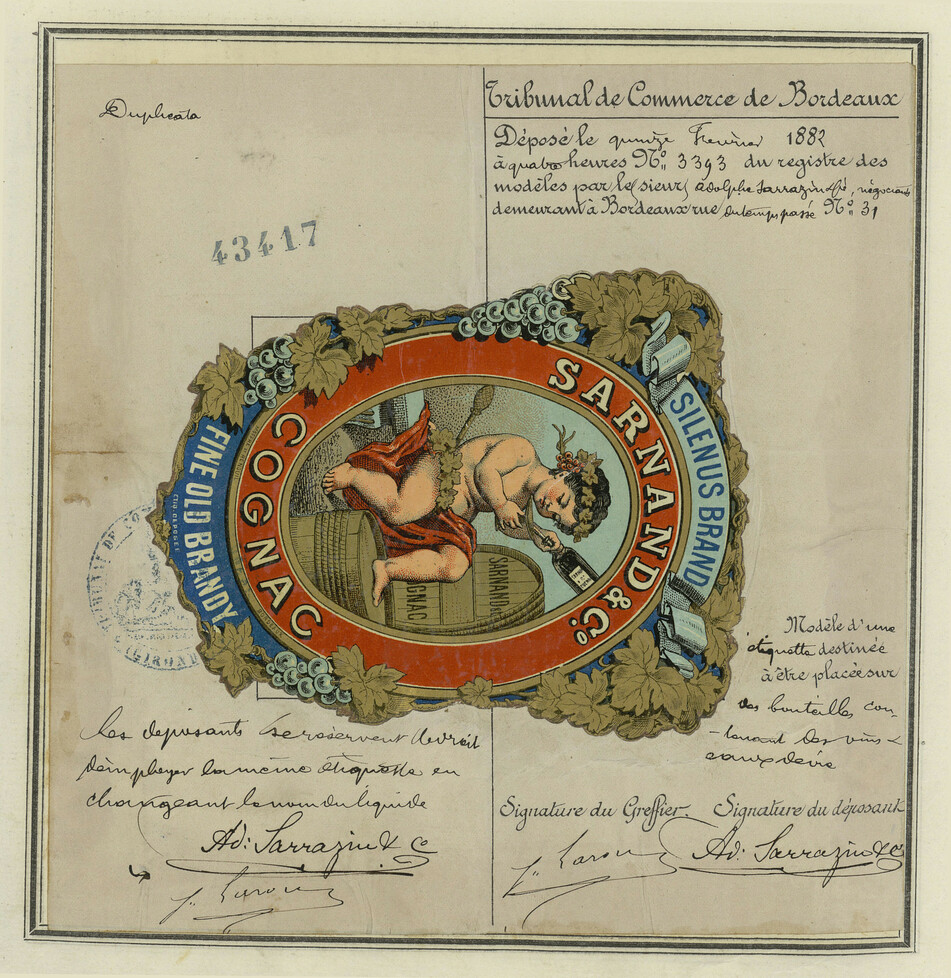 Duplicata
Tribunal de Commerce de Bordeaux
Déposé le quinze Février 1882
à quatre heures No. 3393 du registre des
modèles par le sieur Adolphe Sarrazin & Cie, négociants
demeurant à Bordeaux rue du temps passé No. 31
43417
SARNAND & Co.
SILENUS BRAND
COGNAC
FINE OLD BRANDY
SARNAND
GNAC
GIRONDE
Modèle d'une
étiquette destinée
à être placée sur
des bouteilles con-
tenant des vins &
eaux de vie
les déposants se réservent le droit
d'employer la même étiquette en
changeant le nom du liquide
Ad: Sarrazin & Co
Signature du Greffier. Signature du déposant
Ad: Sarrazin & Co